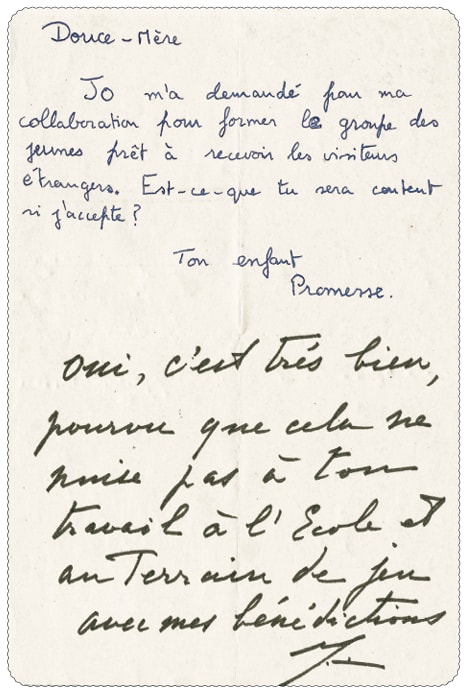 Douce-Mère
Jo m'a demandé pour ma
collaboration pour former le groupe des
jeunes prêt à recevoir les visiteurs
étrangers. Est-ce-que tu sera content
si j'accepte?
Ton enfant
Promesse.
Oui, c'est très bien,
pourvu que cela ne
nuise pas à ton
travail à l'Ecole et
au Terrain de jeu
avec mes bénédictions